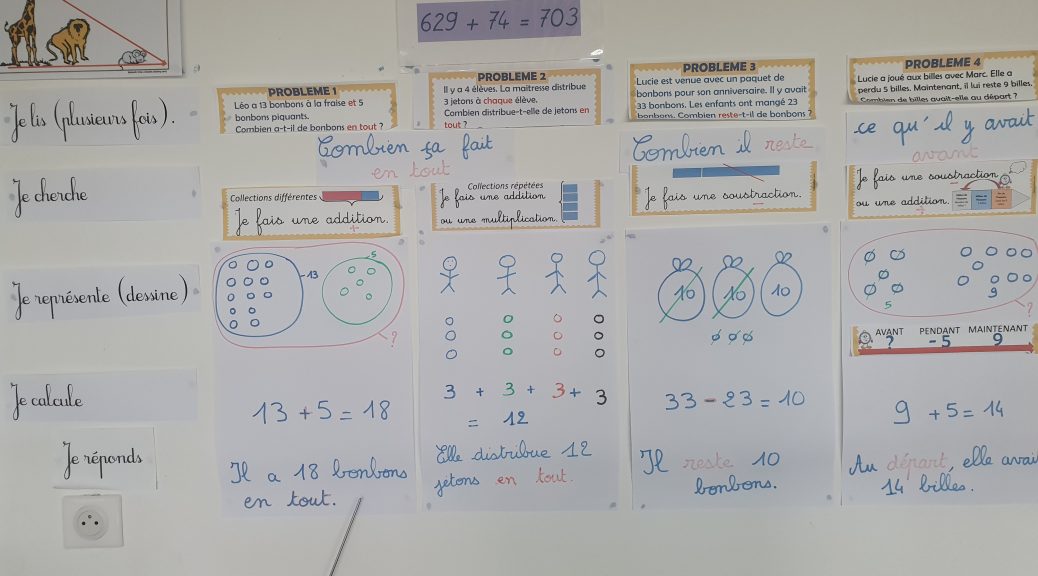 629 + 74 = 703
Je lis (plusieurs fois).
Je cherche
Je représente (dessine)
Je calcule
Je réponds
PROBLEME 1
Léo a 13 bonbons à la fraise et 5
bonbons piquants.
Combien a-t-il de bonbons en tout ?
PROBLEME 2
Il y a 4 élèves. La maitresse distribue
3 jetons à chaque élève.
Combien distribue-t-elle de jetons en
tout ?
Combien ça fait
en tout
Collections différentes
Je fais une addition.
+
Collections répétées
Je fais une addition
ou une multiplication.
13
5
?
13 + 5 = 18
Il a 18 bonbons
en tout.
3 + 3 + 3 + 3
= 12
Elle distribue 12
jetons en tout.
PROBLEME 3
Lucie est venue avec un paquet de
bonbons pour son anniversaire. Il y avait
33 bonbons. Les enfants ont mangé 23
bonbons. Combien reste-t-il de bonbons ?
Combien il reste
Je fais une soustraction.
-
10 10 10
33 - 23 = 10
Il reste 10
bonbons.
PROBLEME 4
Lucie a joué aux billes avec Marc. Elle a
perdu 5 billes. Maintenant, il lui reste 9 billes.
Combien de billes avait-elle au départ ?
ce qu'il y avait
avant
Je fais une soustraction
ou une addition.
5
9
?
AVANT PENDANT MAINTENANT
? - 5 9
9 + 5 = 14
Au départ, elle avai
14 billes.